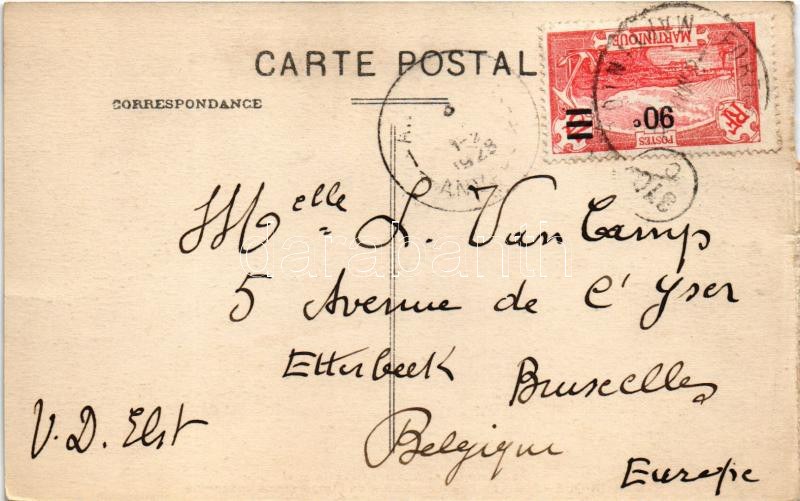 CARTE POSTAL
CORRESPONDANCE
MARTINIQUE
90c
POSTES
RF
1929
Melle L. Van Camp
5 Avenue de l'Yser
Etterbeek Bruxelles
Belgique
Europe
V. D. Elst
darabanth